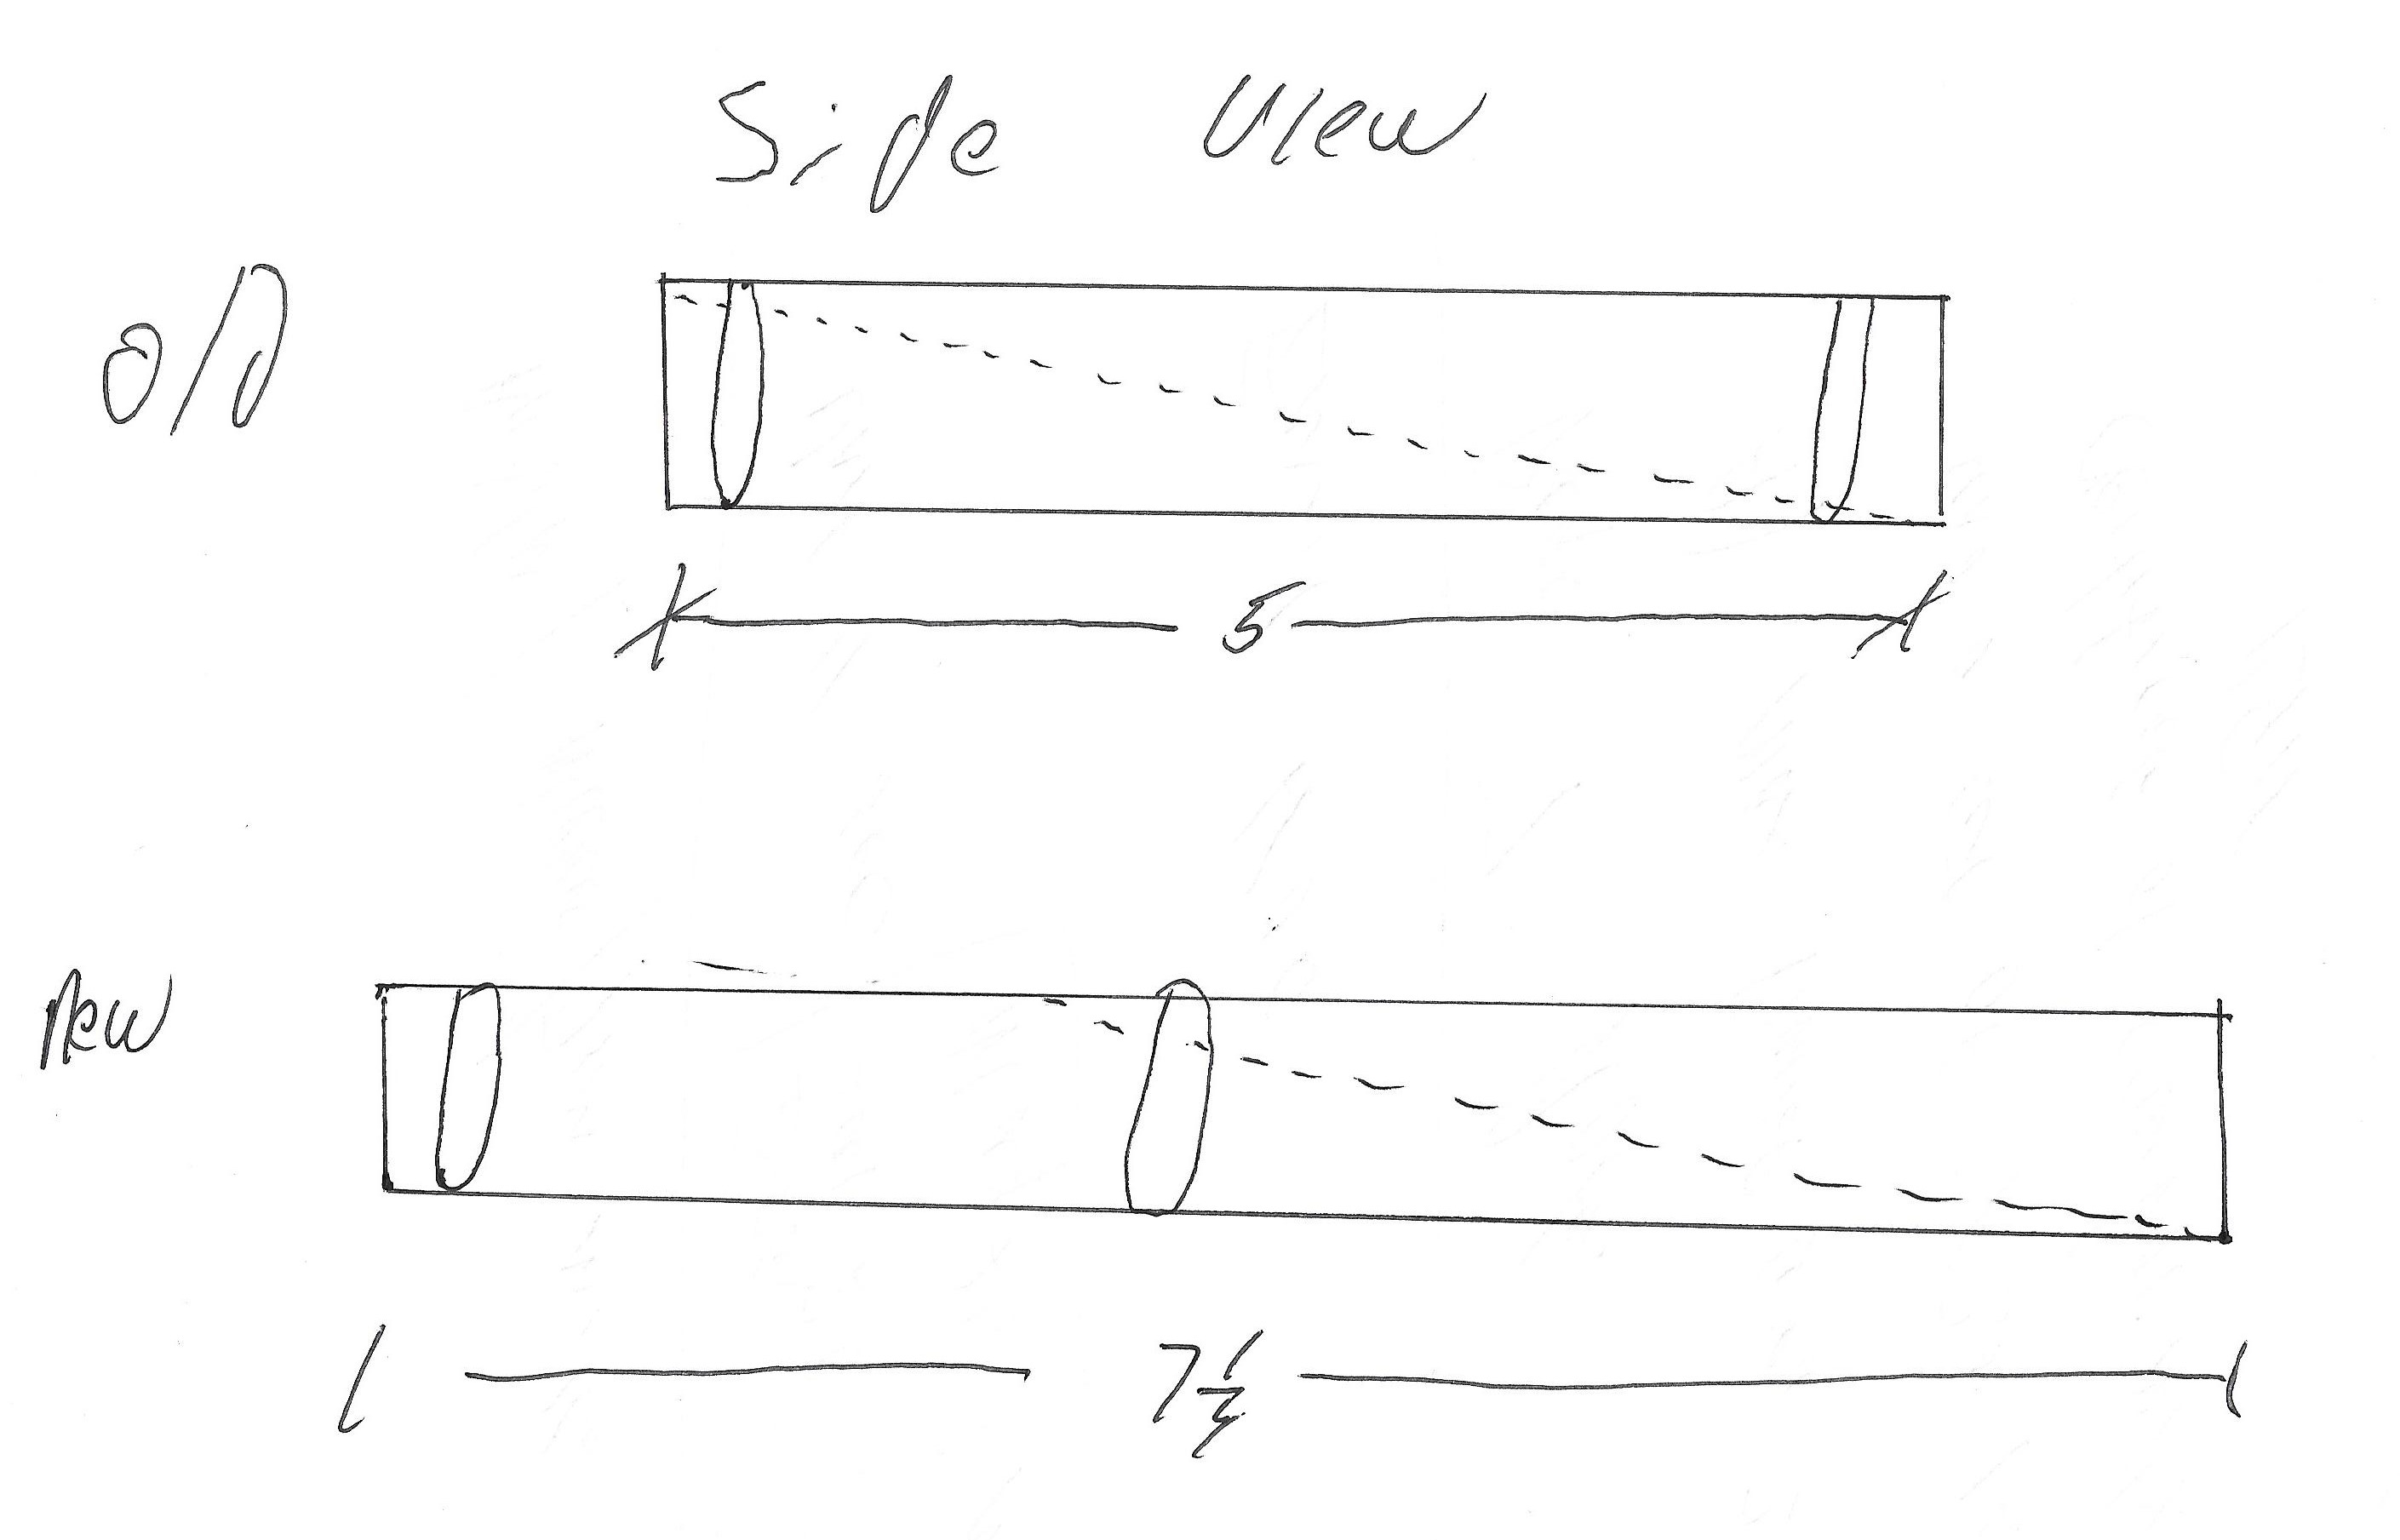 Side View
old
5
New
7